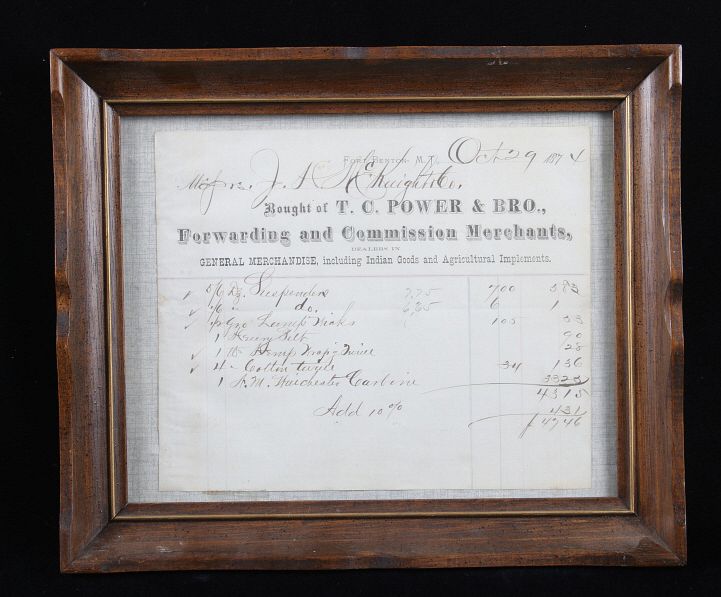 Fort Benton, M. T., Oct 29 1874
Messrs. J. H. McKnight & Co.
Bought of T. C. POWER & BRO.,
Forwarding and Commission Merchants,
DEALERS IN
GENERAL MERCHANDISE, including Indian Goods and Agricultural Implements.
Suspenders 7.75 700 383
do. 6,25 6 1
Lamp Wicks 105 53
1 90
1 Hemp Twine 28
4 " Cotton 34 136
1 Winchester Carbine 3323
4315
Add 10% 431
$ 4746